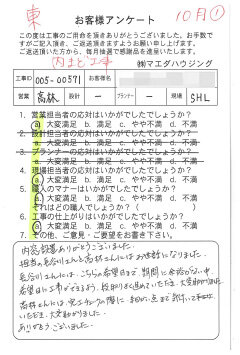 東
10月①
お客様アンケート
この度は工事のご用命を頂きありがとうございました。お手数で
すがご記入頂き、ご返送頂きますようお願い申し上げます。
ご返送頂いた方から、毎月抽選で感謝品を進呈いたします。
内まど工事
㈱マエダハウジング
工事ID 005-00571 お客様名
営業 高林 設計 - プランナー - 現場 SHL
1. 営業担当者の応対はいかがでしたでしょうか？
a 大変満足 b 満足 c やや不満 d 不満
2. 設計担当者の応対はいかがでしたでしょうか？
a 大変満足 b 満足 c やや不満 d 不満
3. プランナーの応対はいかがでしたでしょうか？
a 大変満足 b 満足 c やや不満 d 不満
4. 現場担当者の応対はいかがでしたでしょうか？
a 大変満足 b 満足 c やや不満 d 不満
5. 職人のマナーはいかがでしたでしょうか？
a 大変満足 b 満足 c やや不満 d 不満
それはどの職人でしょうか？（ ）
6. 工事の仕上がりはいかがでしたでしょうか？
a 大変満足 b 満足 c やや不満 d 不満
7. その他、ご意見・ご要望をお書き下さい。
内窓設置ありがとうございました。
担当の長谷川さんと高林さんにはお世話になりました。
長谷川さんには、こちらの希望日まで、期間に余裕がない中、
希望日に工事ができるよう、段取りを進めていただき、大変助かりました。
高林さんには、完工チェックの際に、細かい点まで気付いて下さって
いただき、大変助かりました。
ありがとうございました。